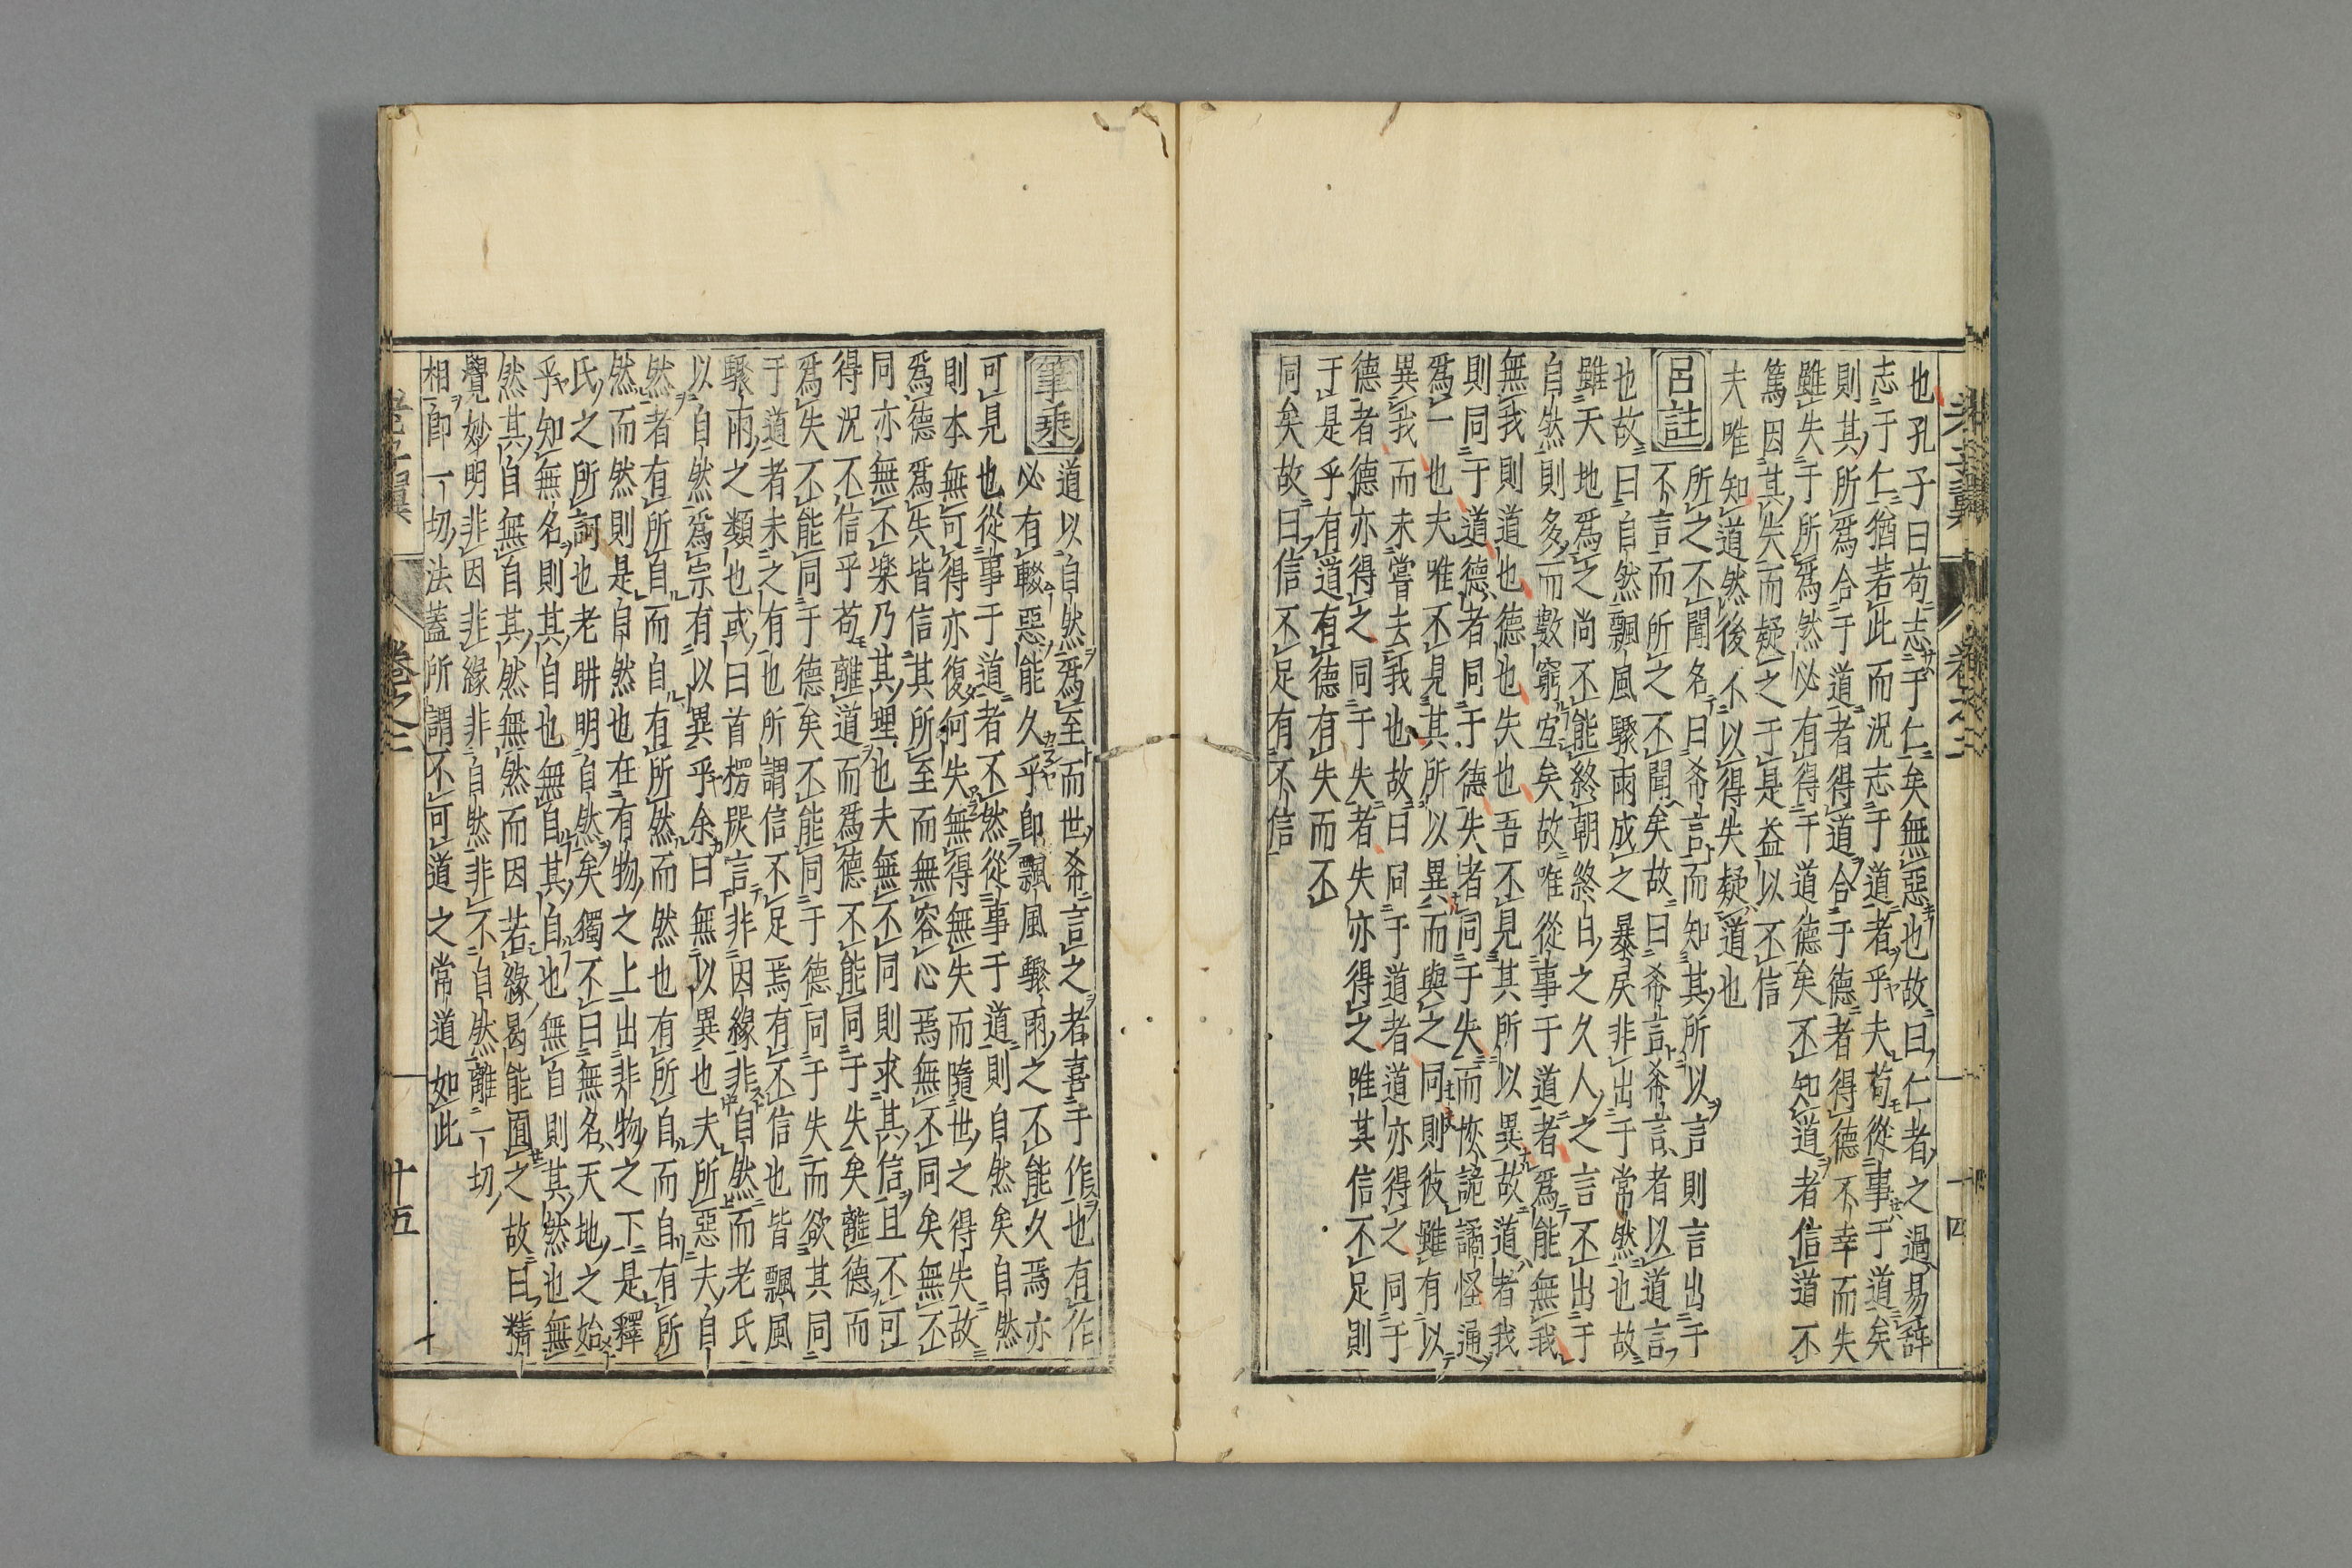 也孔子曰苟志于仁矣無惡也故曰仁者之過易辭
志于仁猶若此而況志于道者乎夫苟從事于道矣
則其所爲合于道者得道合于德者得德不幸而失
雖失于所爲然必有得于道德矣不知道者信道不
篤因其失而疑之于是益以不信
夫唯知道然後不以得失疑道也
呂註
所之不聞名曰希言而知其所以言則言出于
不言而所之不聞矣故曰希言希言者以道言
也故曰自然飄風驟雨成之暴戾非出于常然也故
雖天地爲之尚不能終朝終日之久人之言不出于
自然則多而數窮宜矣故唯從事于道者爲能無我
無我則道也德也失也吾不見其所以異故道者我
則同于道德者同于德失者同于失而恢詭譎怪通
爲一也夫唯不見其所以異而與之同則彼雖有以
異我而未嘗去我也故曰同于道者道亦得之同于
德者德亦得之同于失者失亦得之唯其信不足則
于是乎有道有德有失而不
同矣故曰信不足有不信
老子翼 卷之三 十四
筆乘
道以自然爲至而世希言之者喜于作也有作
必有輟惡能久乎卽飄風驟雨之不能久焉亦
可見也從事于道者不然從事于道則自然矣自然
則本無可得亦復何失無得無失而隨世之得失故
爲德爲失皆信其所至而無容心焉無不同矣無不
同亦無不樂乃其理也夫無不同則求其信且不可
得況不信乎苟離道而爲德不能同于失矣離德而
爲失不能同于德矣不能同于德同于失而欲其同
于道者未之有也所謂信不足焉有不信也皆飄風
驟雨之類也或曰首楞嚴言非因緣非自然而老氏
以自然爲宗有以異乎余曰無以異也夫所惡夫自
然者有所自而自有所然而然也有所自而自有所
然而然則是自然也在有物之上出非物之下是釋
氏之所訶也老耼明自然矣獨不曰無名天地之始
乎知無名則其自也無自其自也無自則其然也無
然其自無自其然無然而因若緣曷能囿之故曰精
覺妙明非因非緣非自然非不自然離一切
相卽一切法蓋所謂不可道之常道如此
老子翼 卷之三 十五